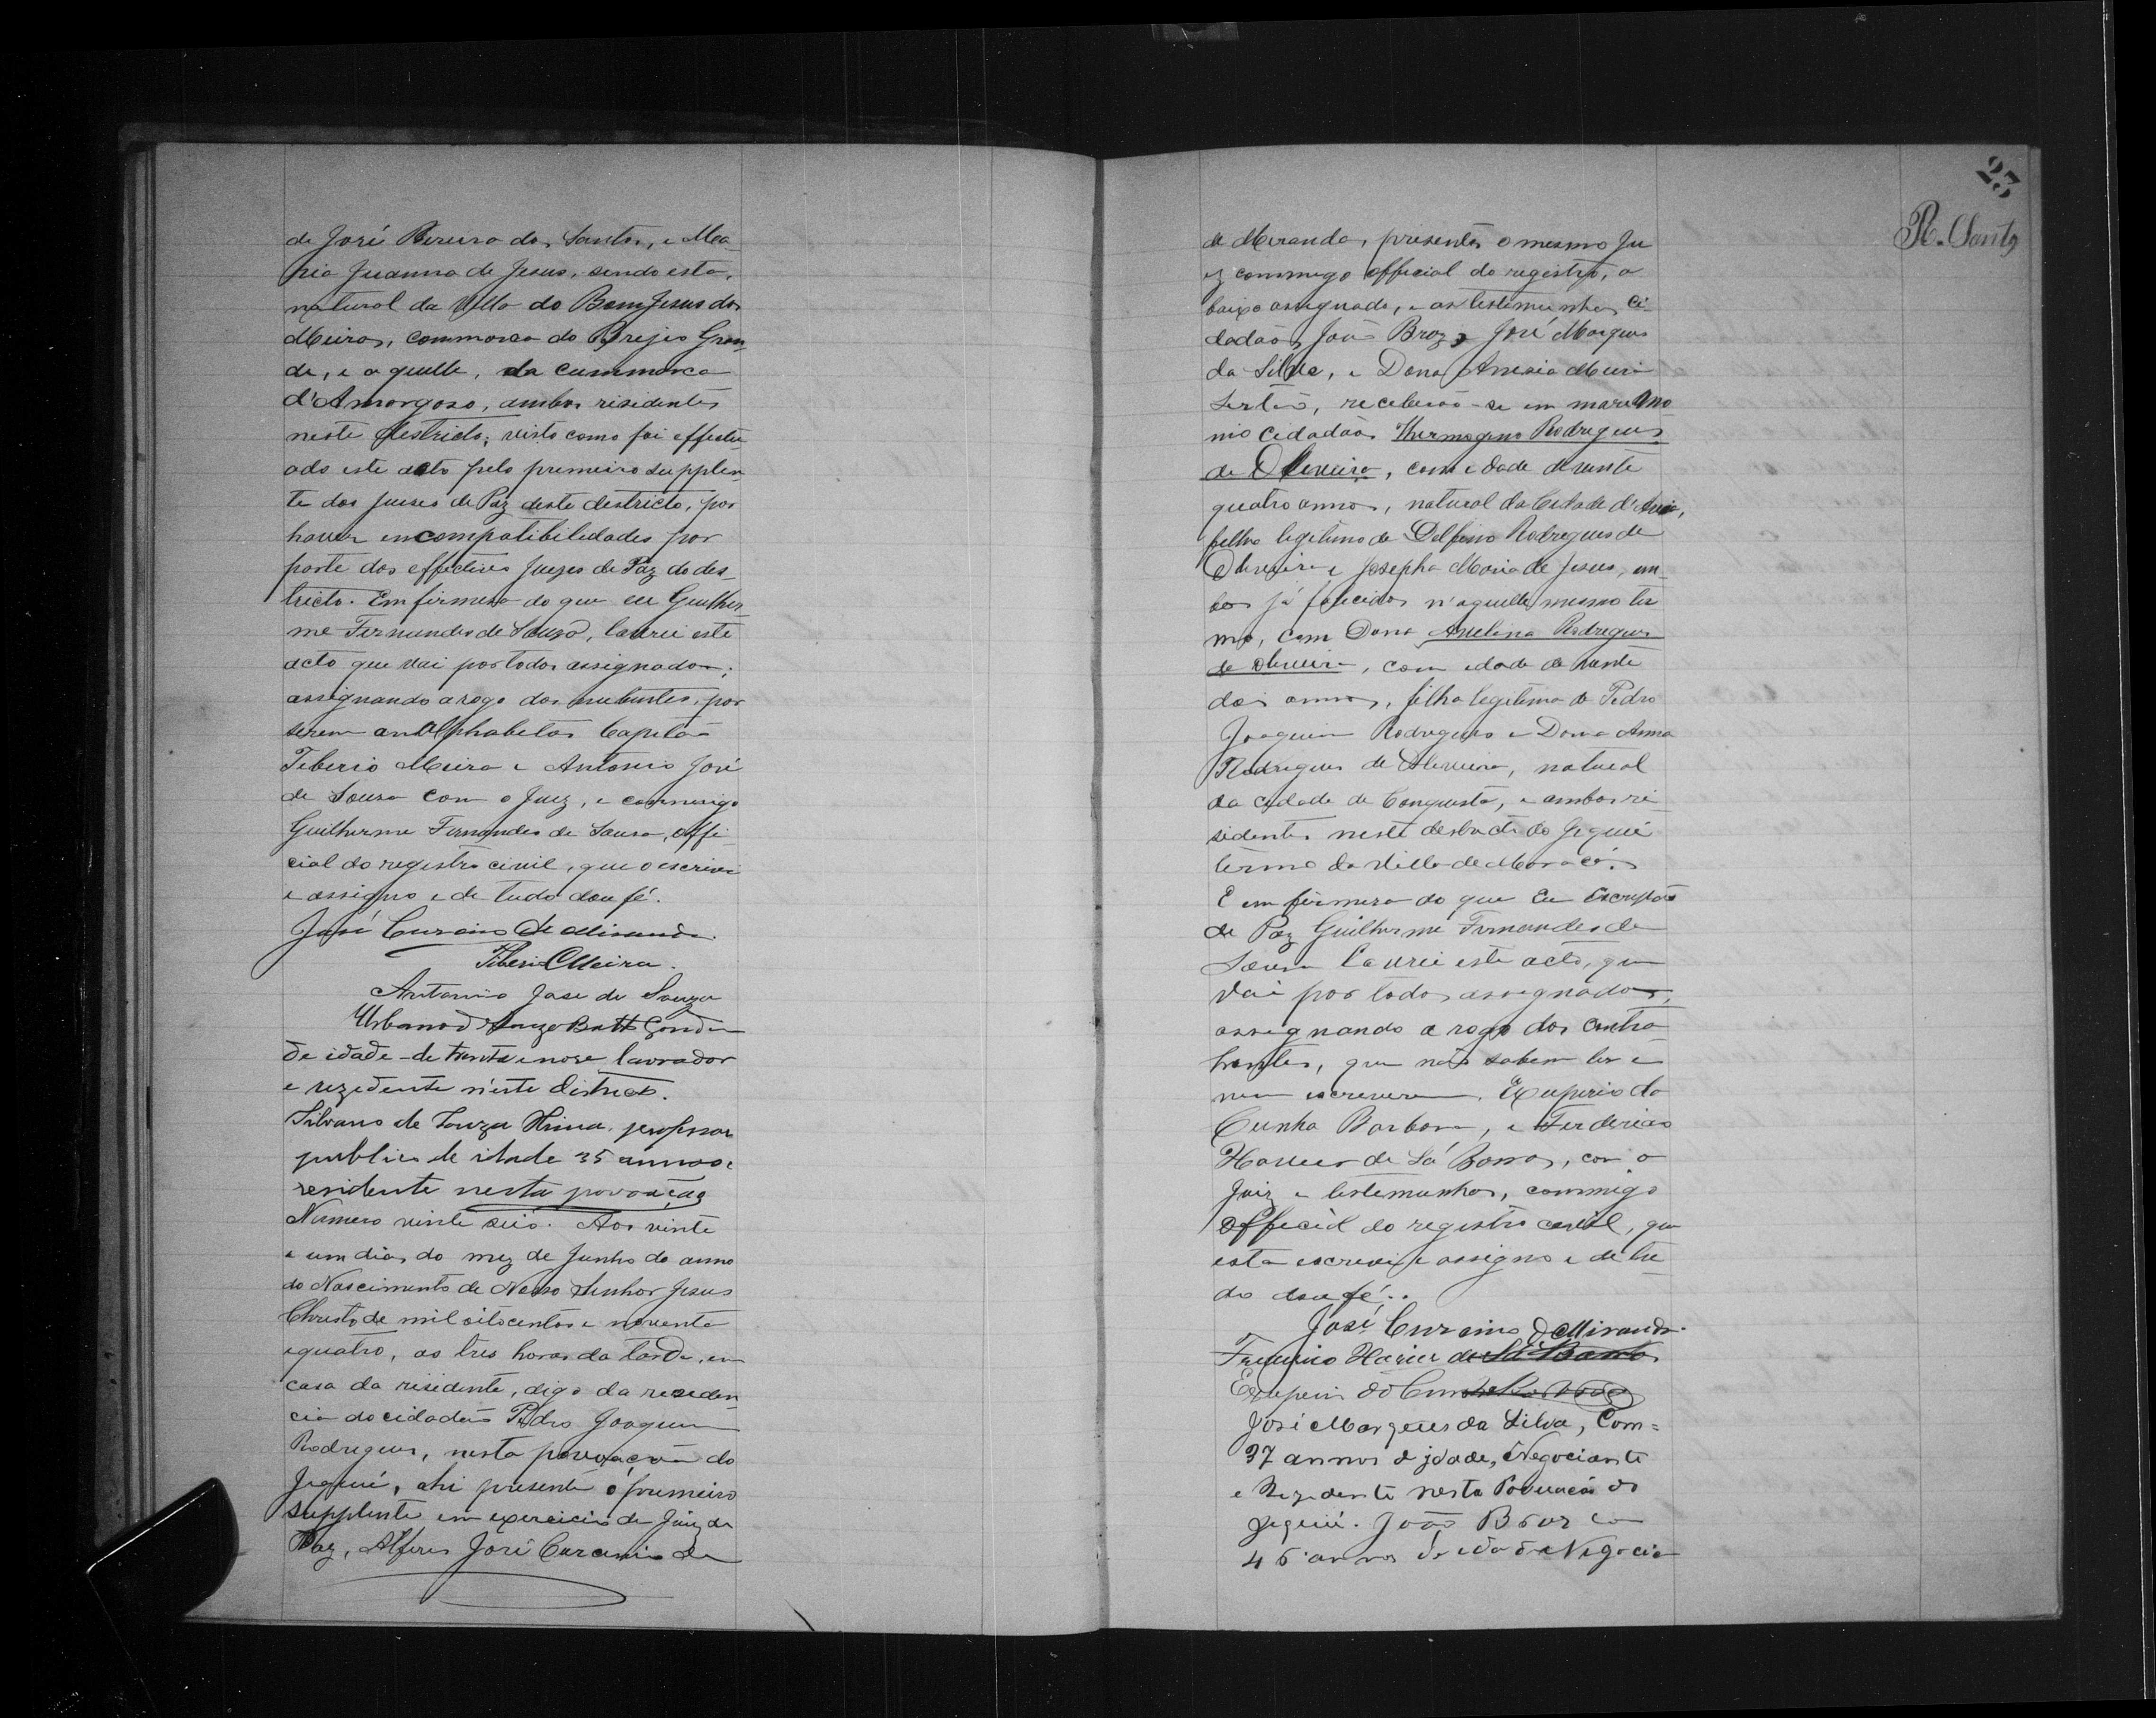 de José Pereira dos Santos, e Ma-
ria Juanna de Jesus, sendo esta,
natural da Villa do Bom Jesus dos
Meiras, commarca do Brejo Gran-
de, e aquelle, da cummarca
d'Amargoso, ambos risidentes
neste destricto; visto como foi effectu-
ado este acto pelo premeiro supplen-
te dos juises de Paz deste destricto, por
haver incompatibilidades por
parte dos effectivos Juizes de Paz do des-
tricto. Em firmesa do que eu Guilher-
me Fernandes de Souza, lavrei este
acto que vai por todos assignados;
assignando a rogo dos nubentes, por
serem analphabetos Capitão
Tiberio Meira e Antonio José
de Souza com o Juiz, e commigo
Guilherme Fernandes de Sousa, offi-
cial do registro civil, que o escrivi
e assigno e de tudo dou fé.
José Curcino de Miranda.
Tiberio Meira.
Antonio Jose de Souza
Urbano de Souza
de idade de trinta e nove lavrador
e rezedente n'este Districto.
Silvano de Souza professor
publico de idade 35 annos e
residente nesta povoação
Numero vinte seis. Aos vinte
e um dias do mez de Junho do anno
do Nascimento de Nosso Senhor Jesus
Christo de mil oitocentos e noventa
e quatro, as tres horas da tarde, em
casa da risidente, digo da residen-
cia do cidadão Pedro Joaquim
Rodrigues, nesta povoação do
Jequié, ahi presente o premeiro
supplente em exercicio de Juiz de
Paz, Alferes José Curcinio de
23
R. Santos
de Meranda, presentes o mesmo Ju-
iz commigo official do registro, a
baixo assignado, e as testemunhas ci-
dadãos João Braz, e José Marques
da Silva, e Dona Anisia Meira
Sertão, receberão-se em matrimo
nio Cidadão Thermogeno Rodrigues
de Oliveira, com edade de vinte
quatro annos, natural da Cidade d'
filho legitimo de Delfino Rodrigues de
Oliveira e Josepha Maria de Jesus, am-
bos já falicidos n'aquelle mesmo ter
mo, com Dona Avelina Rodrigues
de Oliveira, com edade de vinte
dois annos, filha legitima de Pedro
Joaquim Rodrigues e Dona Anna
Rodrigues de Oliveira, natural
da cidade de Conquista, e ambos ri-
sidentes neste destricto do Jequié
termo da Villa de Maracás.
E em firmesa do que Eu Escrivão
de Paz Guilherme Fernandes de
Sousa lavrei este acto, que
vai por todos assignados,
assignando a rogo dos contra-
hentes, que não sabem ler e
nem escreverem. Exuperio da
Cunha Barbosa, e Frederico
Havier de Sá Barros, com o
Juiz e testemunhas, commigo
official do registro civil, que
esta escrevi e assigno e de tu-
do dou fé.
José Curcino de Miranda.
Havier de Sá Barros
Exuperio da Cunha
José Marques da Silva, Com=
37 annos de idade, Negociante
e Rezedente nesta Povuação do
Jequié. João Braz com
46 annos de idade Negocia